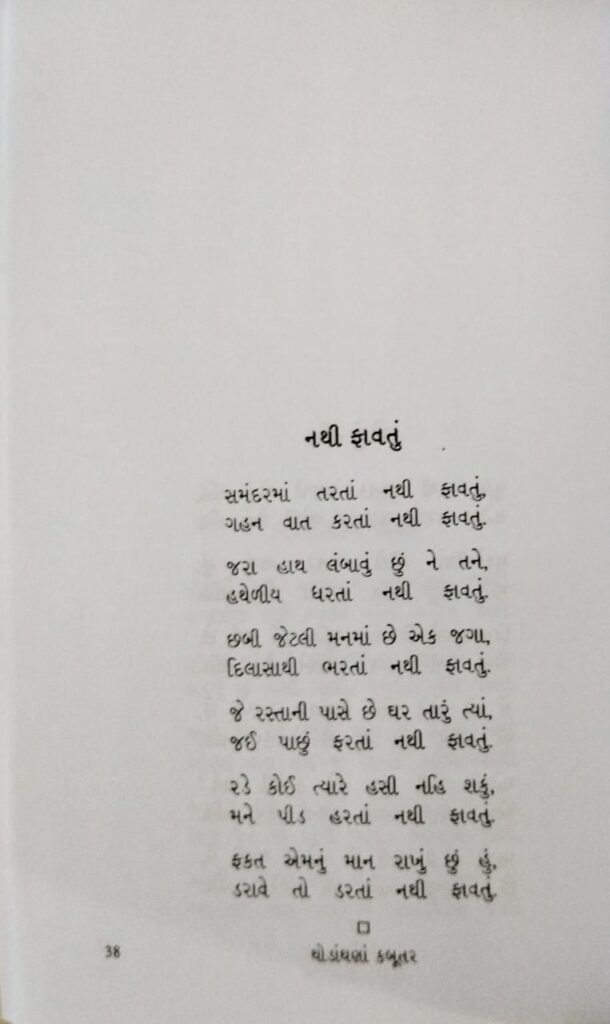 નથી ફાવતું
સમંદરમાં તરતાં નથી ફાવતું,
ગહન વાત કરતાં નથી ફાવતું.
જરા હાથ લંબાવું છું ને તને,
હથેળીય ધરતાં નથી ફાવતું.
છબી જેટલી મનમાં છે એક જગા,
દિલાસાથી ભરતાં નથી ફાવતું.
જે રસ્તાની પાસે છે ઘર તારું ત્યાં,
જઈ પાછું ફરતાં નથી ફાવતું.
રડે કોઈ ત્યારે હસી નહિ શકું,
મને પીડ હરતાં નથી ફાવતું.
ફકત એમનું માન રાખું છું હું,
ડરાવે તો ડરતાં નથી ફાવતું.
38
થોડાંઘણાં કબૂતર